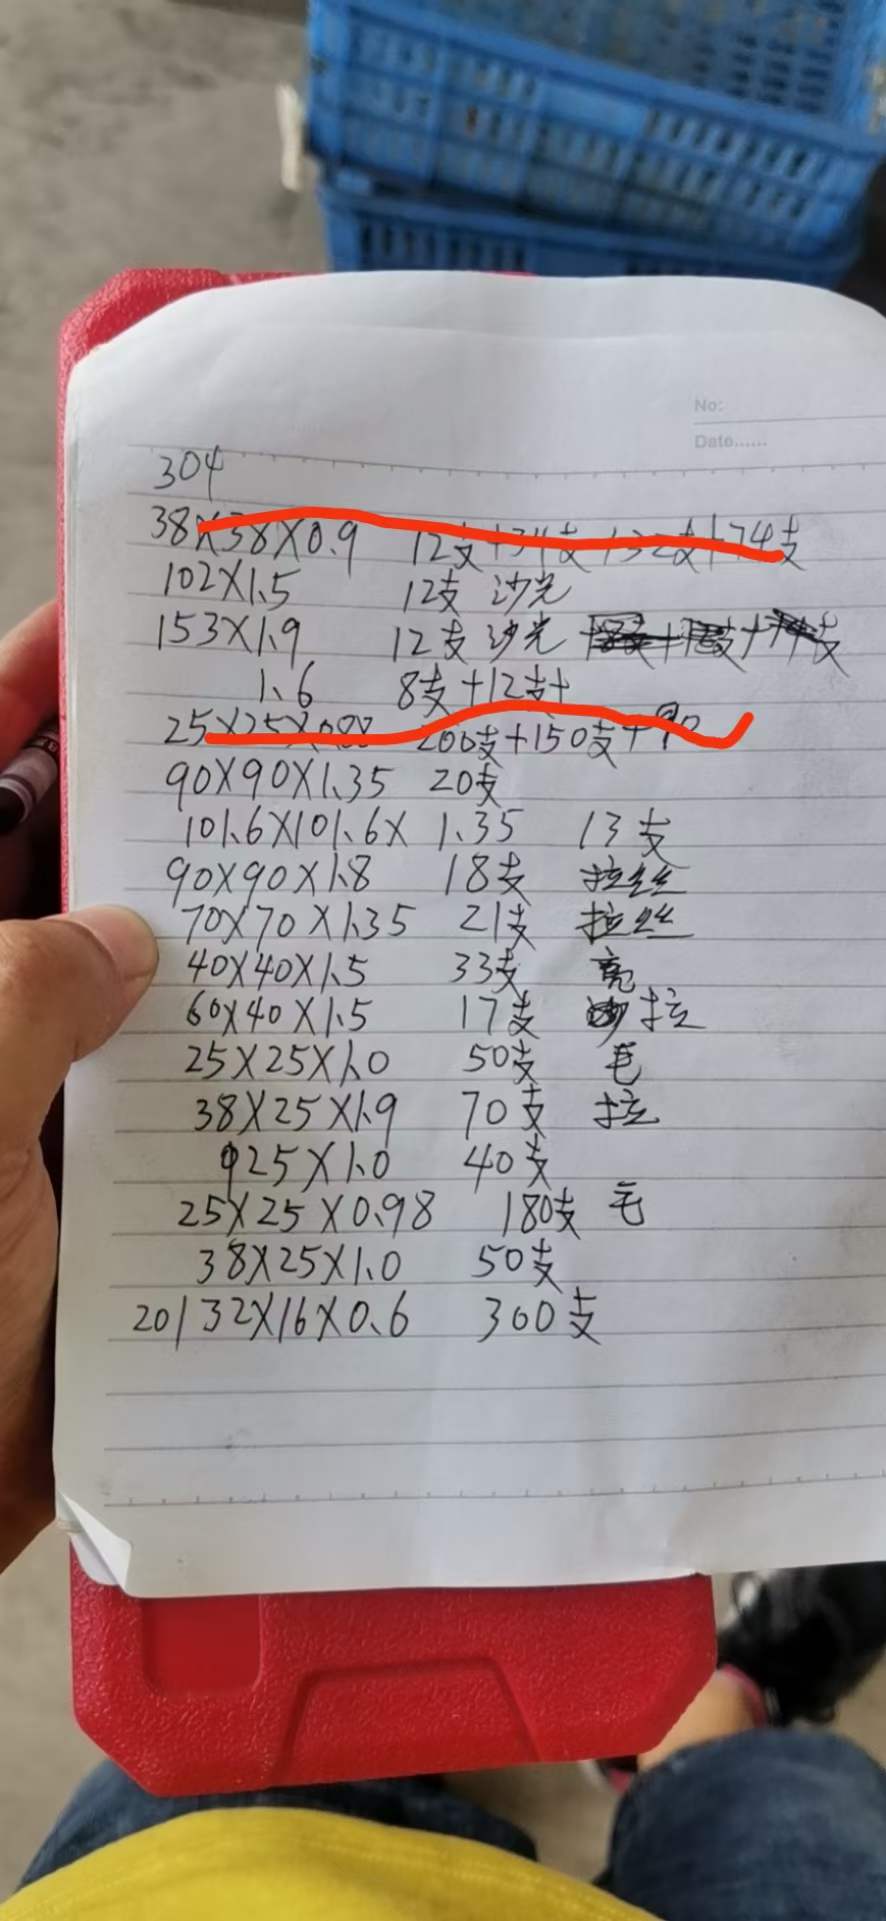 No:
Date......
304
38X38X0.9 12支+34支+32支+74支
102X1.5 12支 沙光
153X1.9 12支 沙光
1.6 8支+12支+
25X25X0.88 200支+150支+90
90X90X1.35 20支
101.6X101.6X 1.35 13支
90X90X1.8 18支 拉丝
70X70X1.35 21支 拉丝
40X40X1.5 33支 亮
60X40X1.5 17支 拉
25X25X1.0 50支 毛
38X25X1.9 70支 拉
φ25X1.0 40支
25X25X0.98 180支 毛
38X25X1.0 50支
201 32X16X0.6 300支